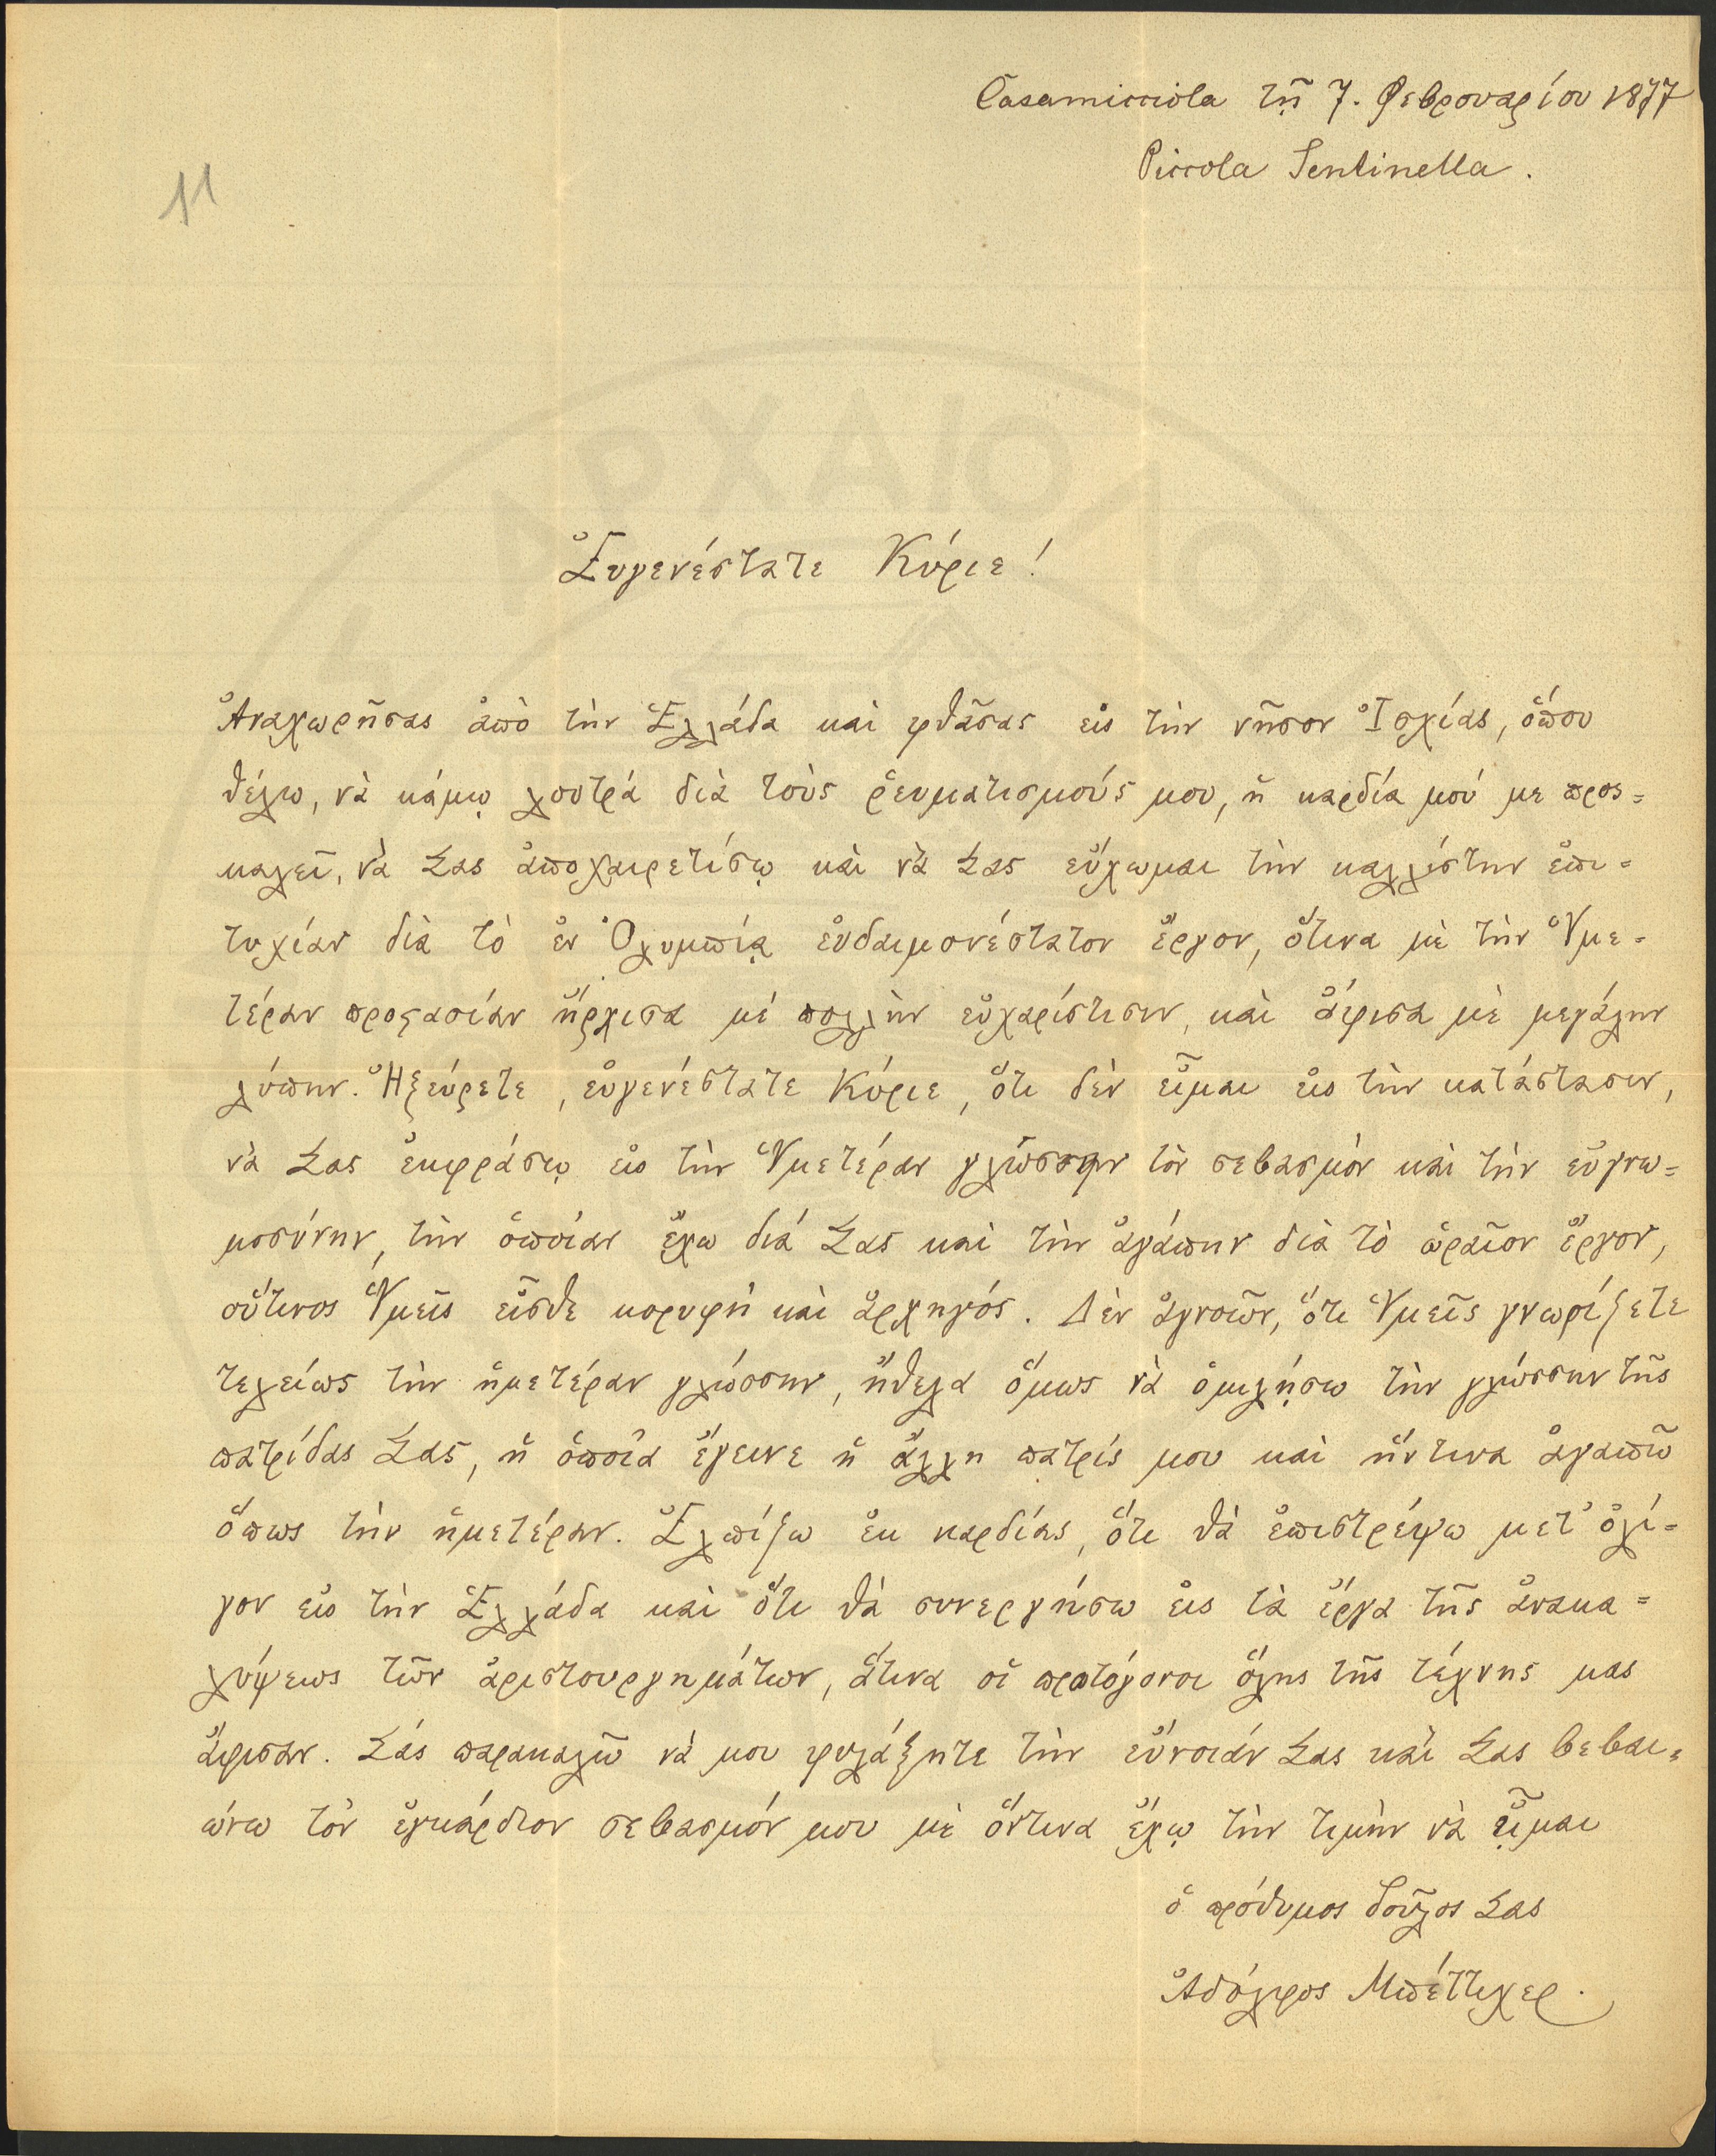 Casamicciola τῇ 7. Φεβρουαρίου 1877
Piccola Sentinella.
11
Εὐγενέστατε Κύριε!
Ἀναχωρῆσας ἀπὸ τὴν Ἑλλάδα καὶ φθᾶσας εἰς τὴν νῆσον Ἰσχίας, ὅπου
θέλω, νὰ κάμῳ λουτρά διὰ τοὺς ῥευματισμούς μου, ἡ καρδία μού με προς=
καλεῖ, νὰ Σας ἀποχαιρετίσῳ καὶ νὰ Σας εὔχωμαι τὴν καλλίστην ἐπι=
τυχίαν διὰ τὸ ἐν Ὀλυμπίᾳ εὐδαιμονέστατον ἔργον, ὅτινα μὲ τὴν Ὑμε=
τέραν προστασίαν ἤρχισα μέ πολλὴν εὐχαρίστισιν, καὶ ἄφισα μὲ μεγάλην
λύπην. Ἠξεύρετε, εὐγενέστατε Κύριε, ὅτι δὲν εἶμαι εἰς τὴν κατάστασιν,
νὰ Σας ἐκφράσῳ εἰς τὴν Ὑμετέραν γλῶσσην τὸν σεβασμόν καὶ τὴν εὐγνω=
μοσύνην, τὴν ὁποίαν ἔχω διά Σας καὶ τὴν ἀγάπην διὰ τὸ ὡραῖον ἔργον,
οὕτινος Ὑμεῖς εἶσθε κορυφή καὶ ἀρχηγός. Δὲν ἀγνοῶν, ὅτι Ὑμεῖς γνωρίζετε
τελείως τὴν ἡμετέραν γλώσσην, ἤθελα ὅμως νὰ ὁμιλήσω τὴν γλώσσην τῆς
πατρίδας Σας, ἡ ὁποία ἔγεινε ἡ ἄλλη πατρίς μου καὶ ἥντινα ἀγαπῶ
ὅπως τὴν ἡμετέραν. Ἐλπίζω ἐκ καρδίας, ὅτι θὰ ἐπιστρέψω μετ' ὀλί=
γον εἰς τὴν Ἑλλάδα καὶ ὅτι θὰ συνεργήσω εἰς τὰ ἔργα τῆς ἀνακα=
λύψεως τῶν ἀριστουργημάτων, ἅτινα οἱ πρωτόγονοι ὅλης τῆς τέχνης μας
ἄφισαν. Σάς παρακαλῶ νὰ μου φυλάξητε τὴν εὔνοιάν Σας καὶ Σας βεβαι=
ώνω τὸν ἐγκάρδιον σεβασμόν μου μὲ ὅντινα ἔχῳ τὴν τιμὴν νὰ εἶμαι
ὁ πρόθυμος δοῦλος Σας
Ἀδόλφος Μπέττιχερ.